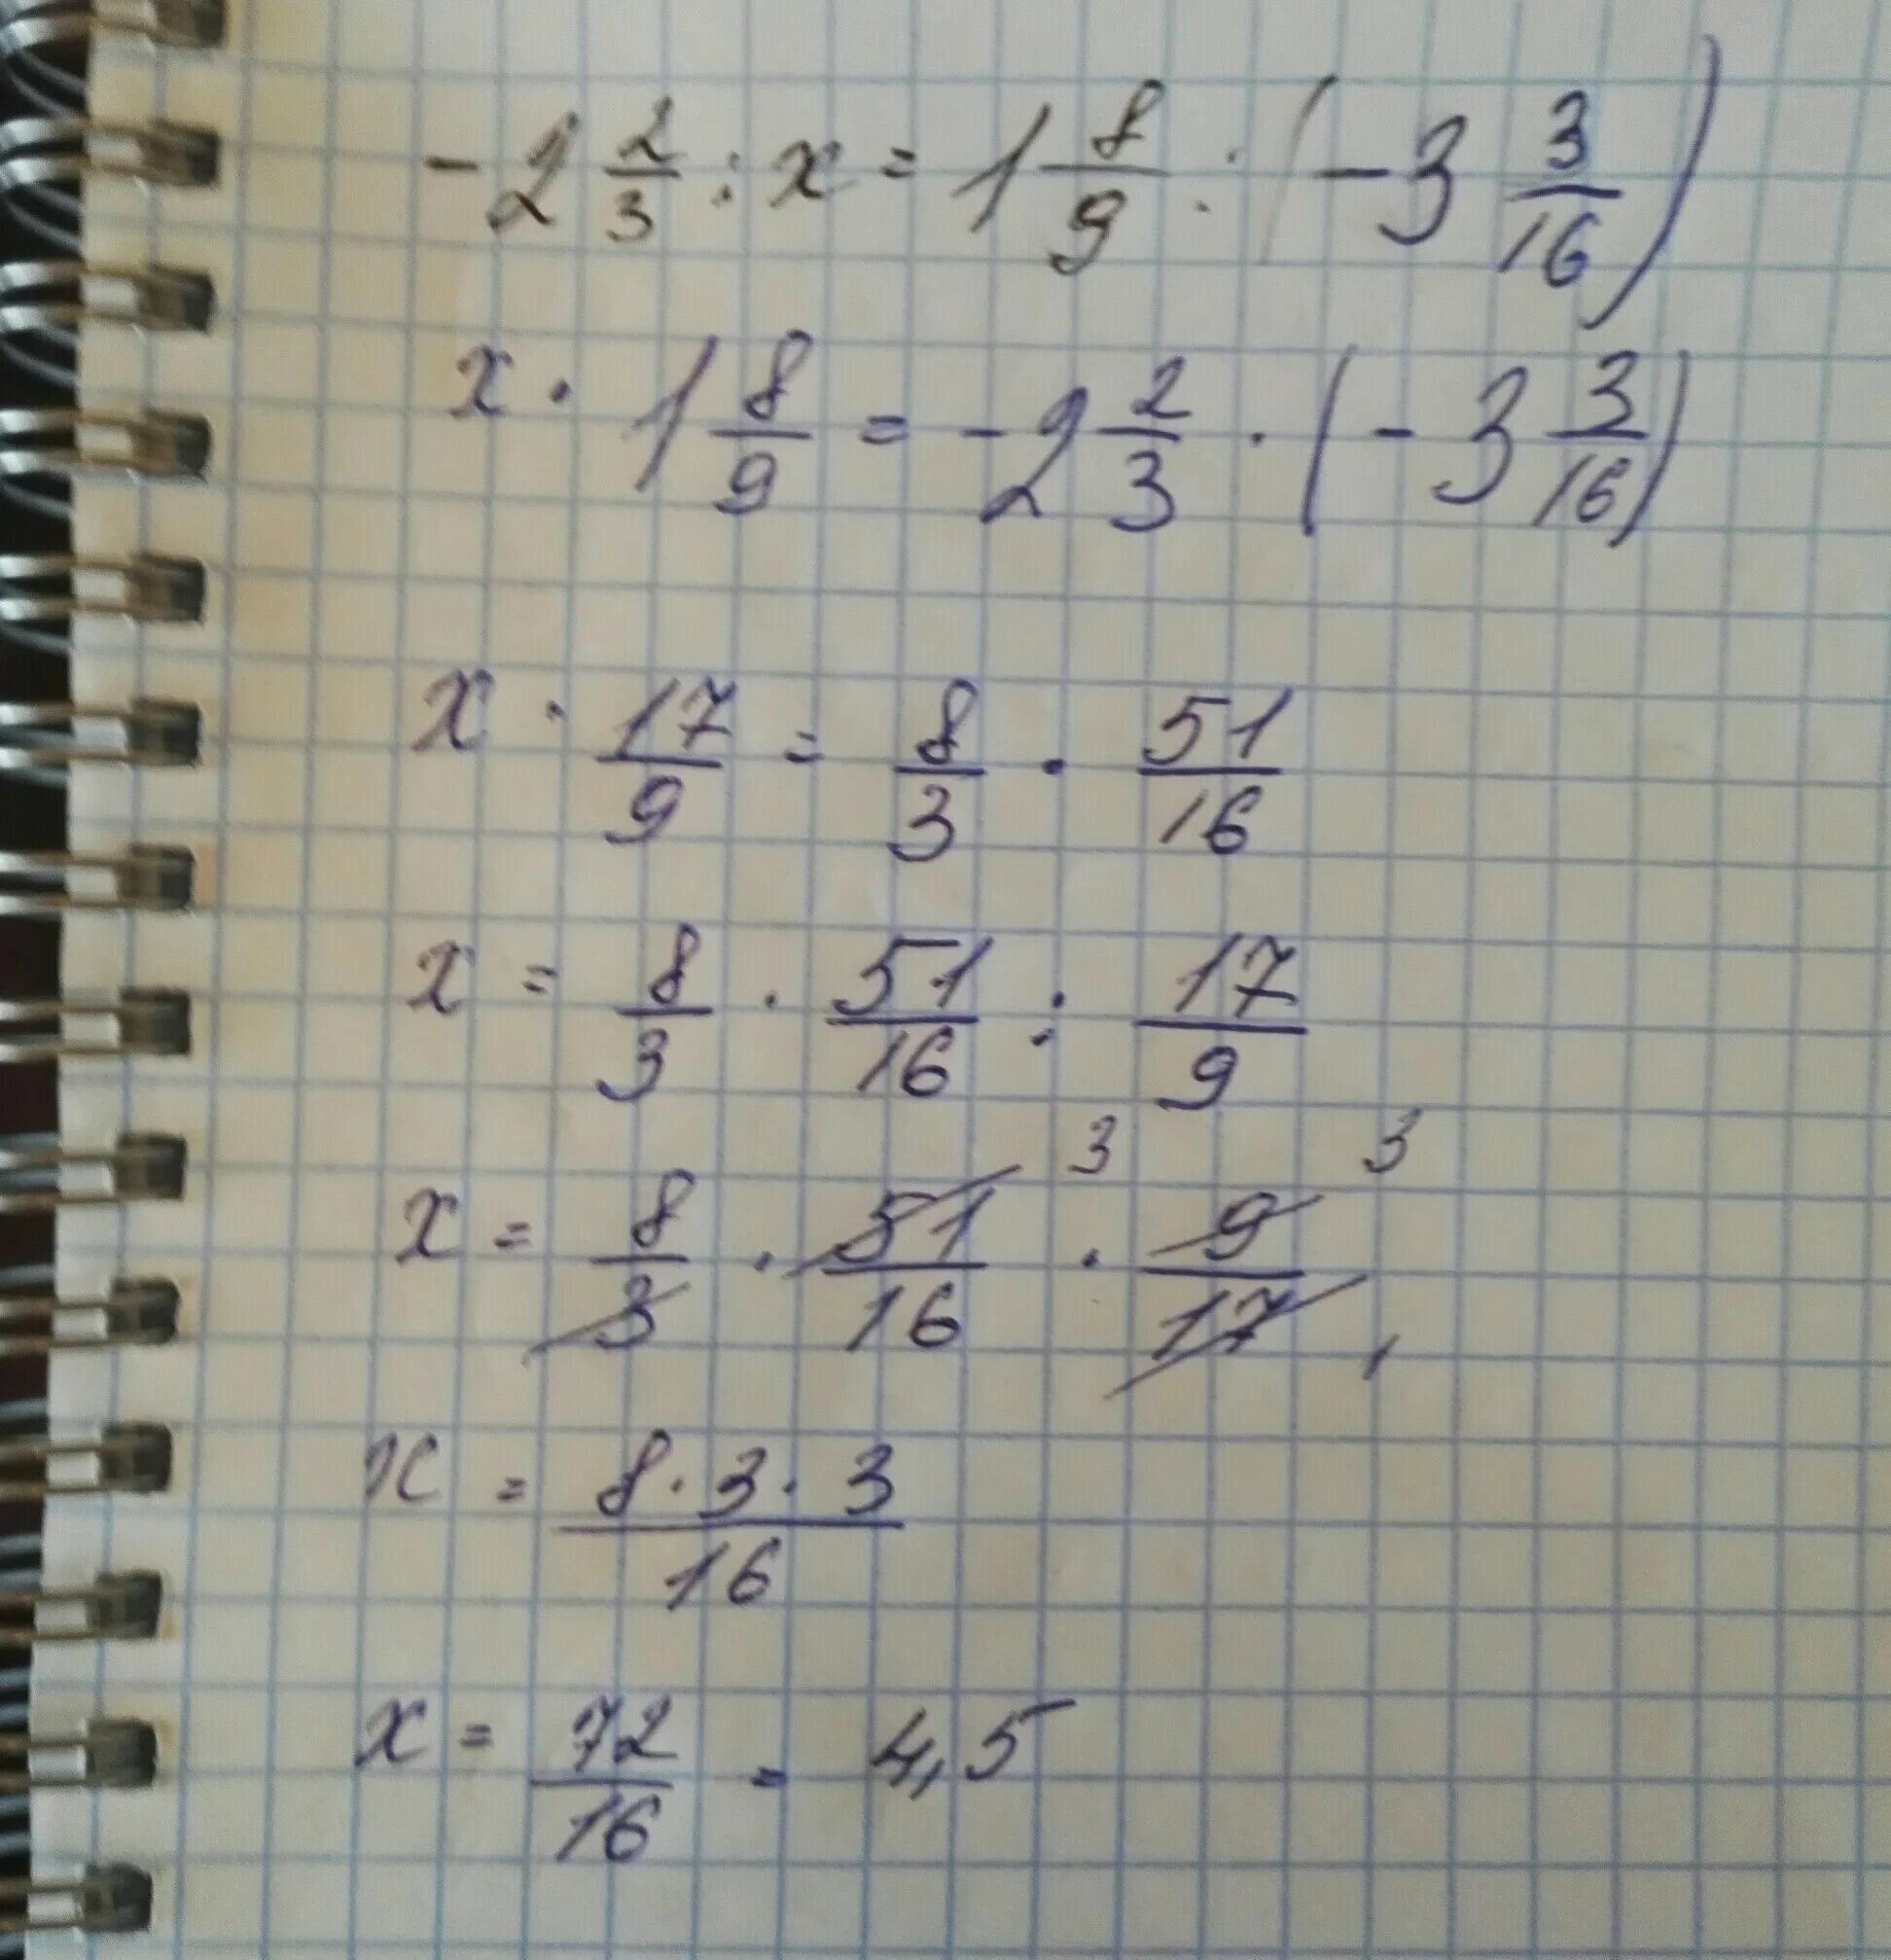 -2 2/3 : x = 1 8/9 : (-3 3/16)
x · 1 8/9 = -2 2/3 · (-3 3/16)
x · 17/9 = 8/3 · 51/16
x = 8/3 · 51/16 : 17/9
3 3
x = 8/3 · 51/16 · 9/17 1
x = 8·3·3/16
x = 72/16 = 4,5